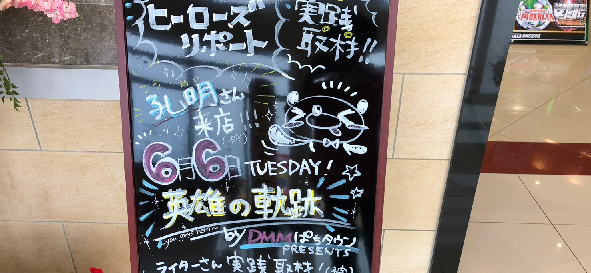 ヒーローズ
リポート
実践
取材!!
孔明さん
来店!!!
6月6日 TUESDAY!
英雄の軌跡
by DMMぱちタウン
PRESENTS
ライターさん 実践取材!!